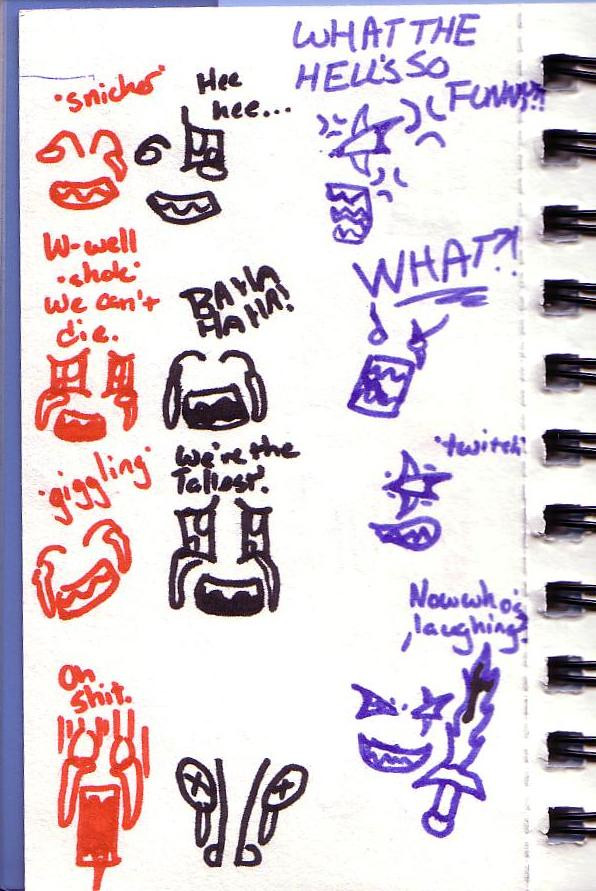 WHAT THE
HELL'S SO
FUNNY?!
*snicker*
Hee
hee...
W-well
*choke*
we can't
die.
BAHA
HAHA!
WHAT?!
*giggling*
We're the
Tallest!
*twitch*
Now who's
laughing?
Oh
shit.